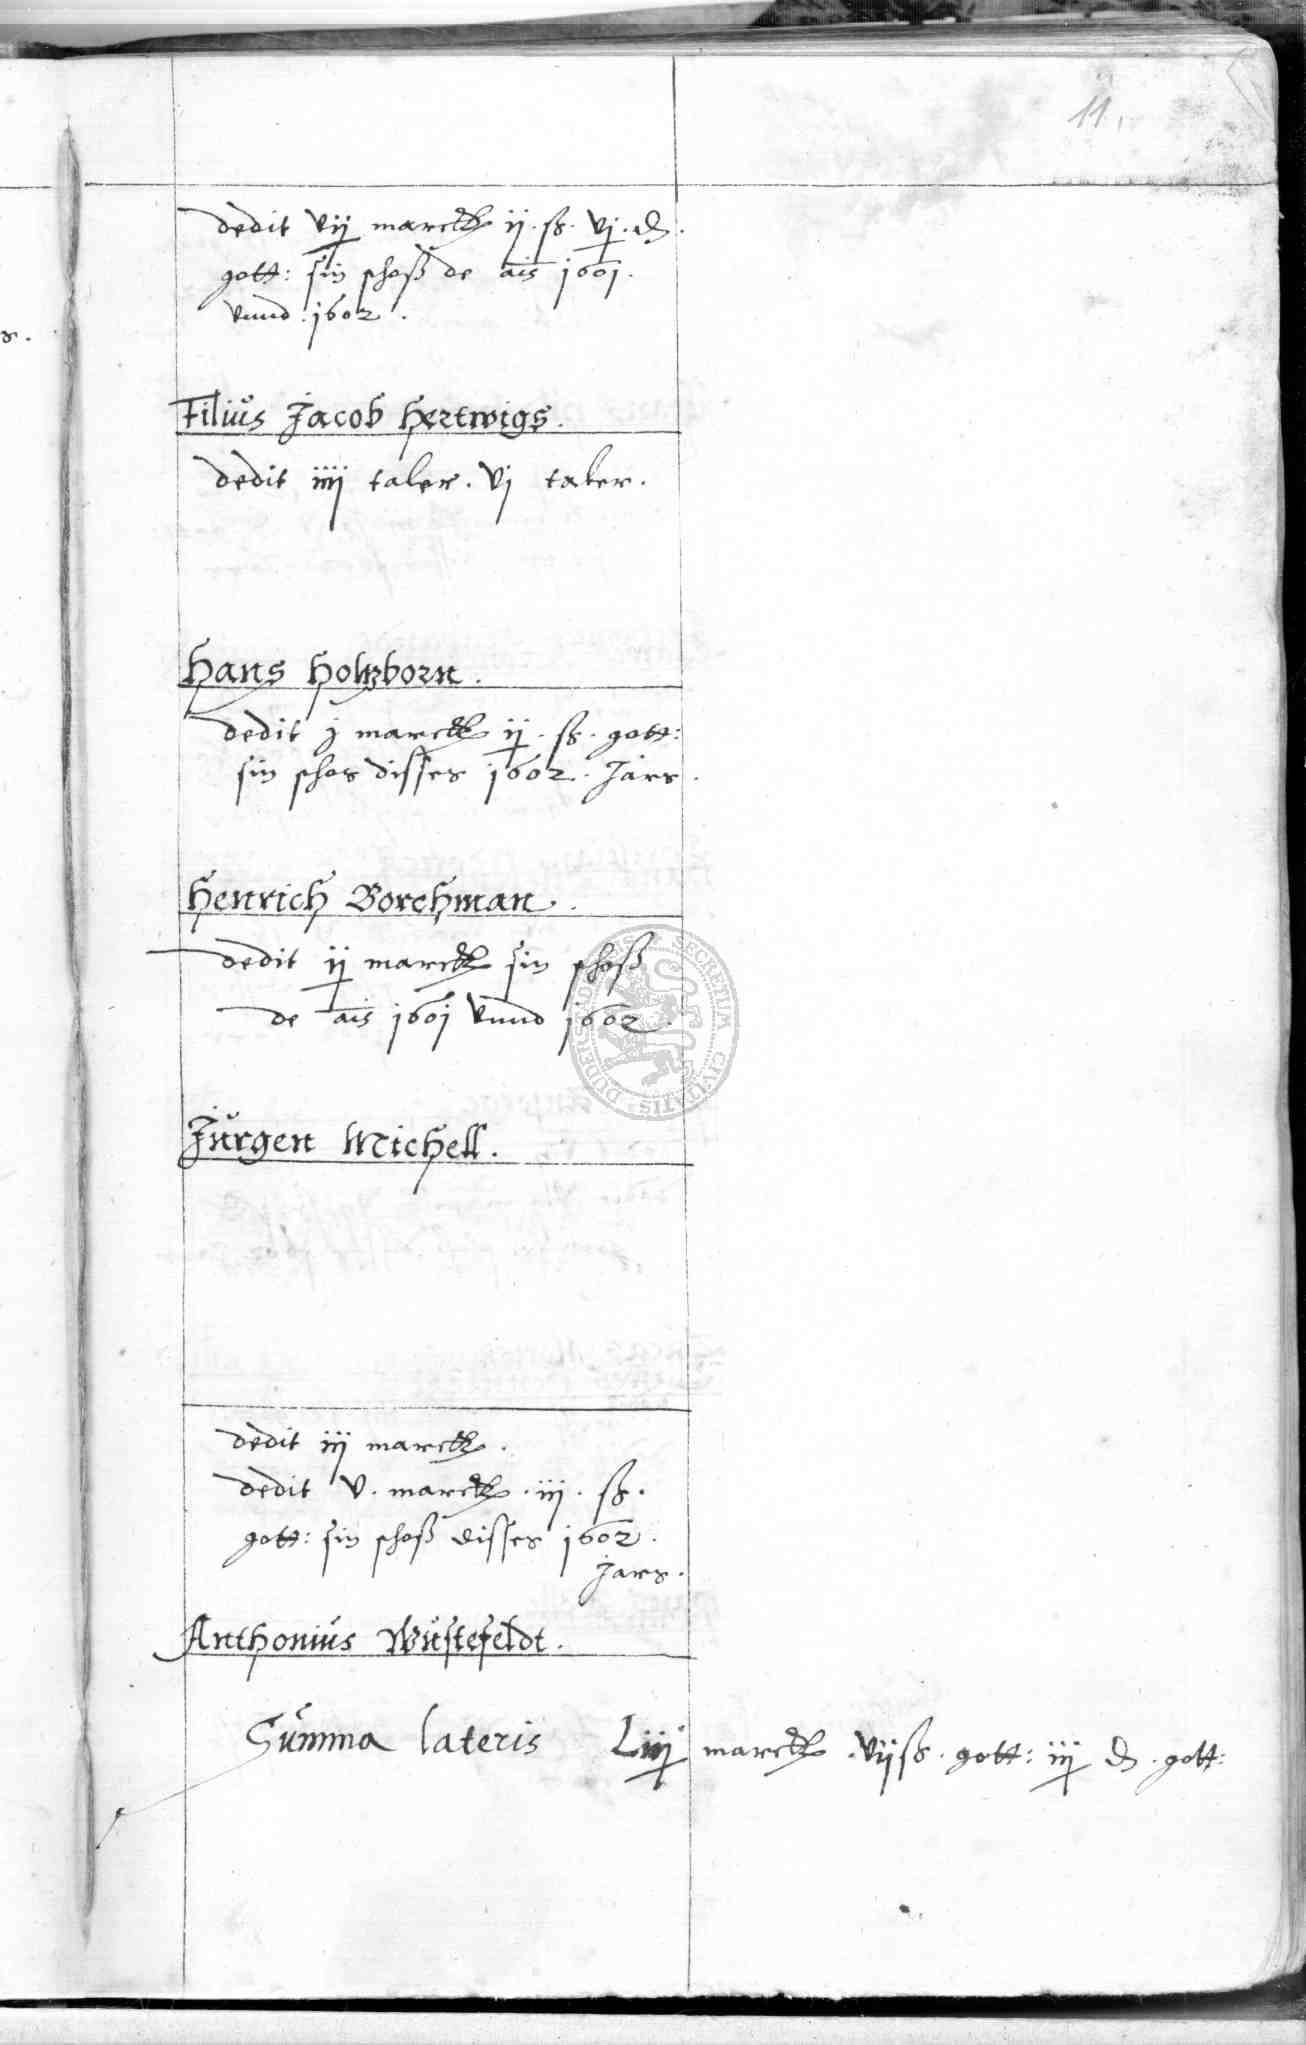 11.
dedit vij marck ij. ß. vj. d.
gott: sin schoß de ais 1601.
vnnd 1602.
Filius Jacob Hertwigs.
dedit iiij taler. vj taler.
Hans Holtzborn.
dedit j marck ij. ß. gott:
sin schos disses 1602. Jars.
Henrich Borchman.
dedit ij marck sin schoß
de ais 1601 vnnd 1602.
SECRETUM CIVITATIS DUDERSTADENSIS
Jürgen Michell.
dedit iij marck.
dedit v. marck. iij. ß.
gott: sin schoß disses 1602.
Jars.
Anthonius Wüstefeldt.
Summa lateris Liiij marck. vij ß. gott: iij d. gott: